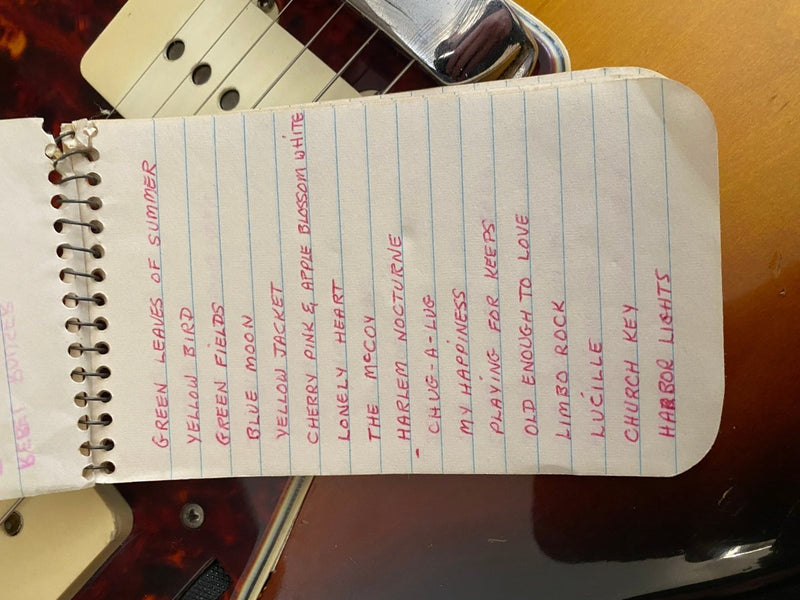 GREEN LEAVES OF SUMMER
YELLOW BIRD
GREEN FIELDS
BLUE MOON
YELLOW JACKET
CHERRY PINK & APPLE BLOSSOM WHITE
LONELY HEART
THE McCOY
HARLEM NOCTURNE
- CHUG-A-LUG
MY HAPPINESS
PLAYING FOR KEEPS
OLD ENOUGH TO LOVE
LIMBO ROCK
LUCILLE
CHURCH KEY
HARBOR LIGHTS